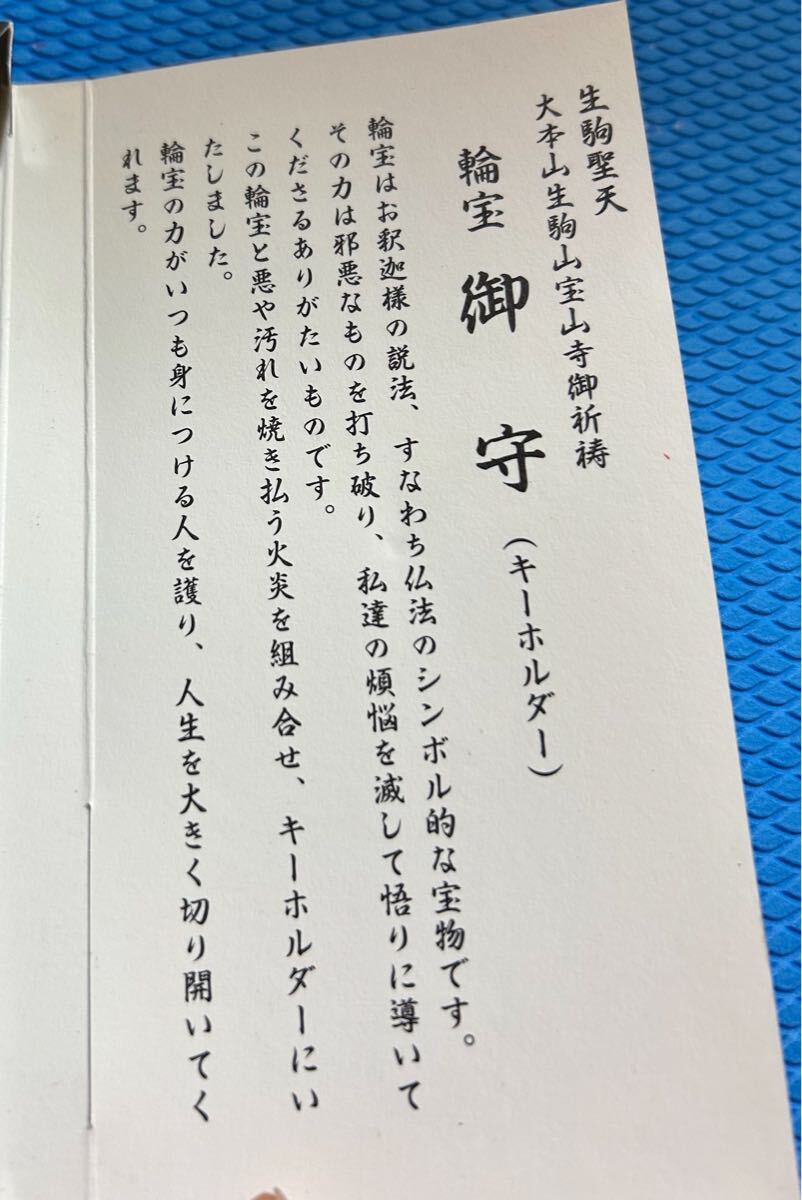 生駒聖天
大本山生駒山宝山寺御祈祷
輪宝 御 守(キーホルダー)
輪宝はお釈迦様の説法、すなわち仏法のシンボル的な宝物です。
その力は邪悪なものを打ち破り、私達の煩悩を滅して悟りに導いて
くださるありがたいものです。
この輪宝と悪や汚れを焼き払う火炎を組み合せ、キーホルダーにい
たしました。
輪宝の力がいつも身につける人を護り、人生を大きく切り開いてく
れます。